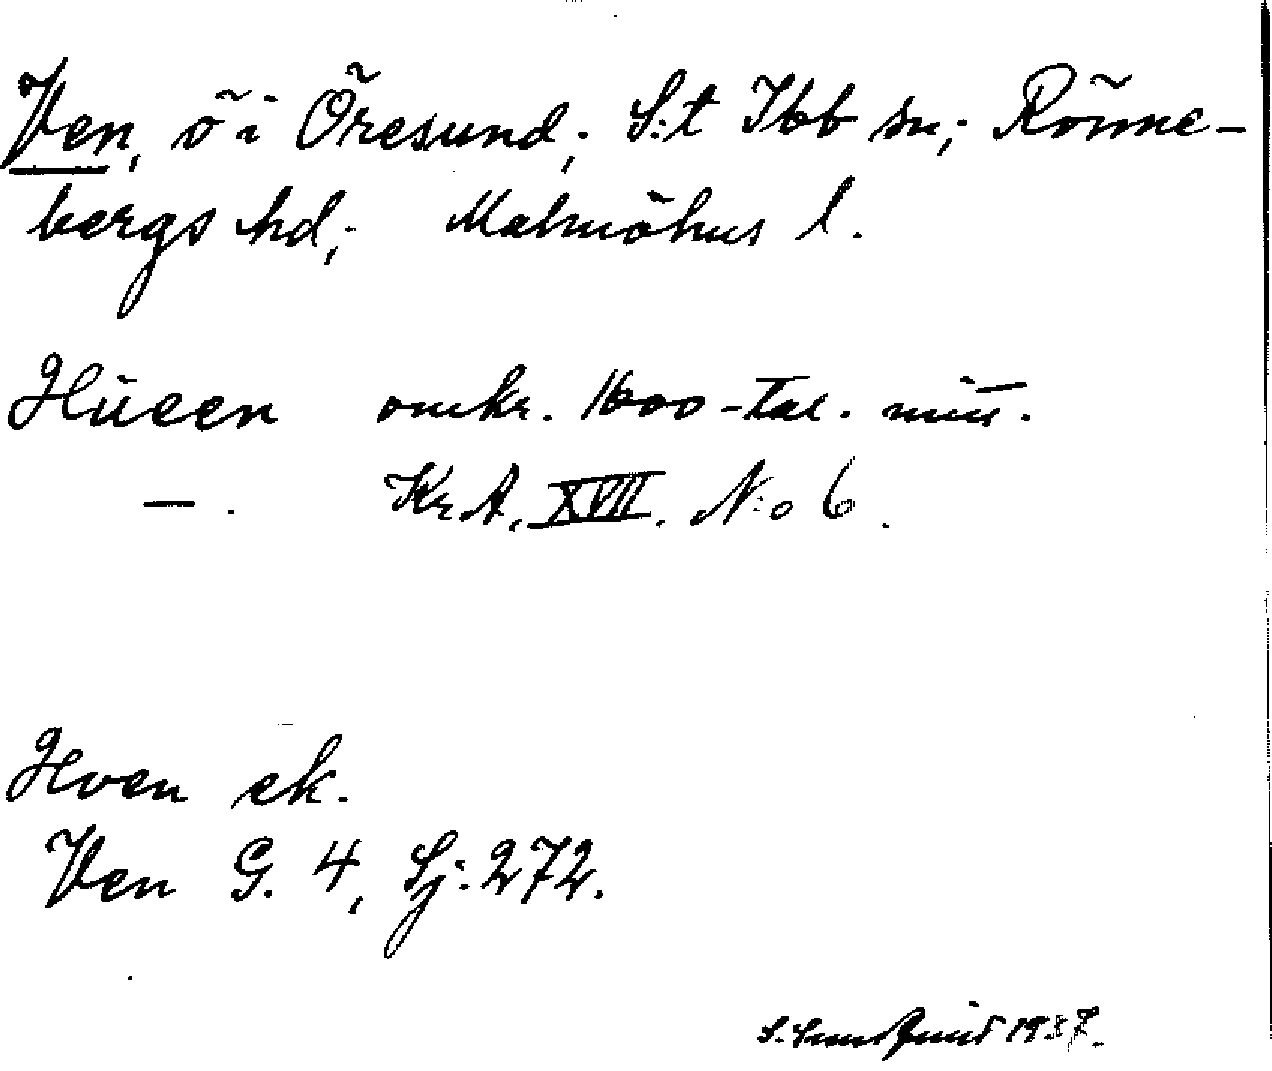 Ven, ö i Öresund; S:t Ibb sn; Rönne-
bergs hd; Malmöhus l.
Hüeen omkr. 1600-tal. mitt.
— . Kr.A. XVII. N:o 6.
Hven ek.
Ven G. 4, Sj. 272.
1937.